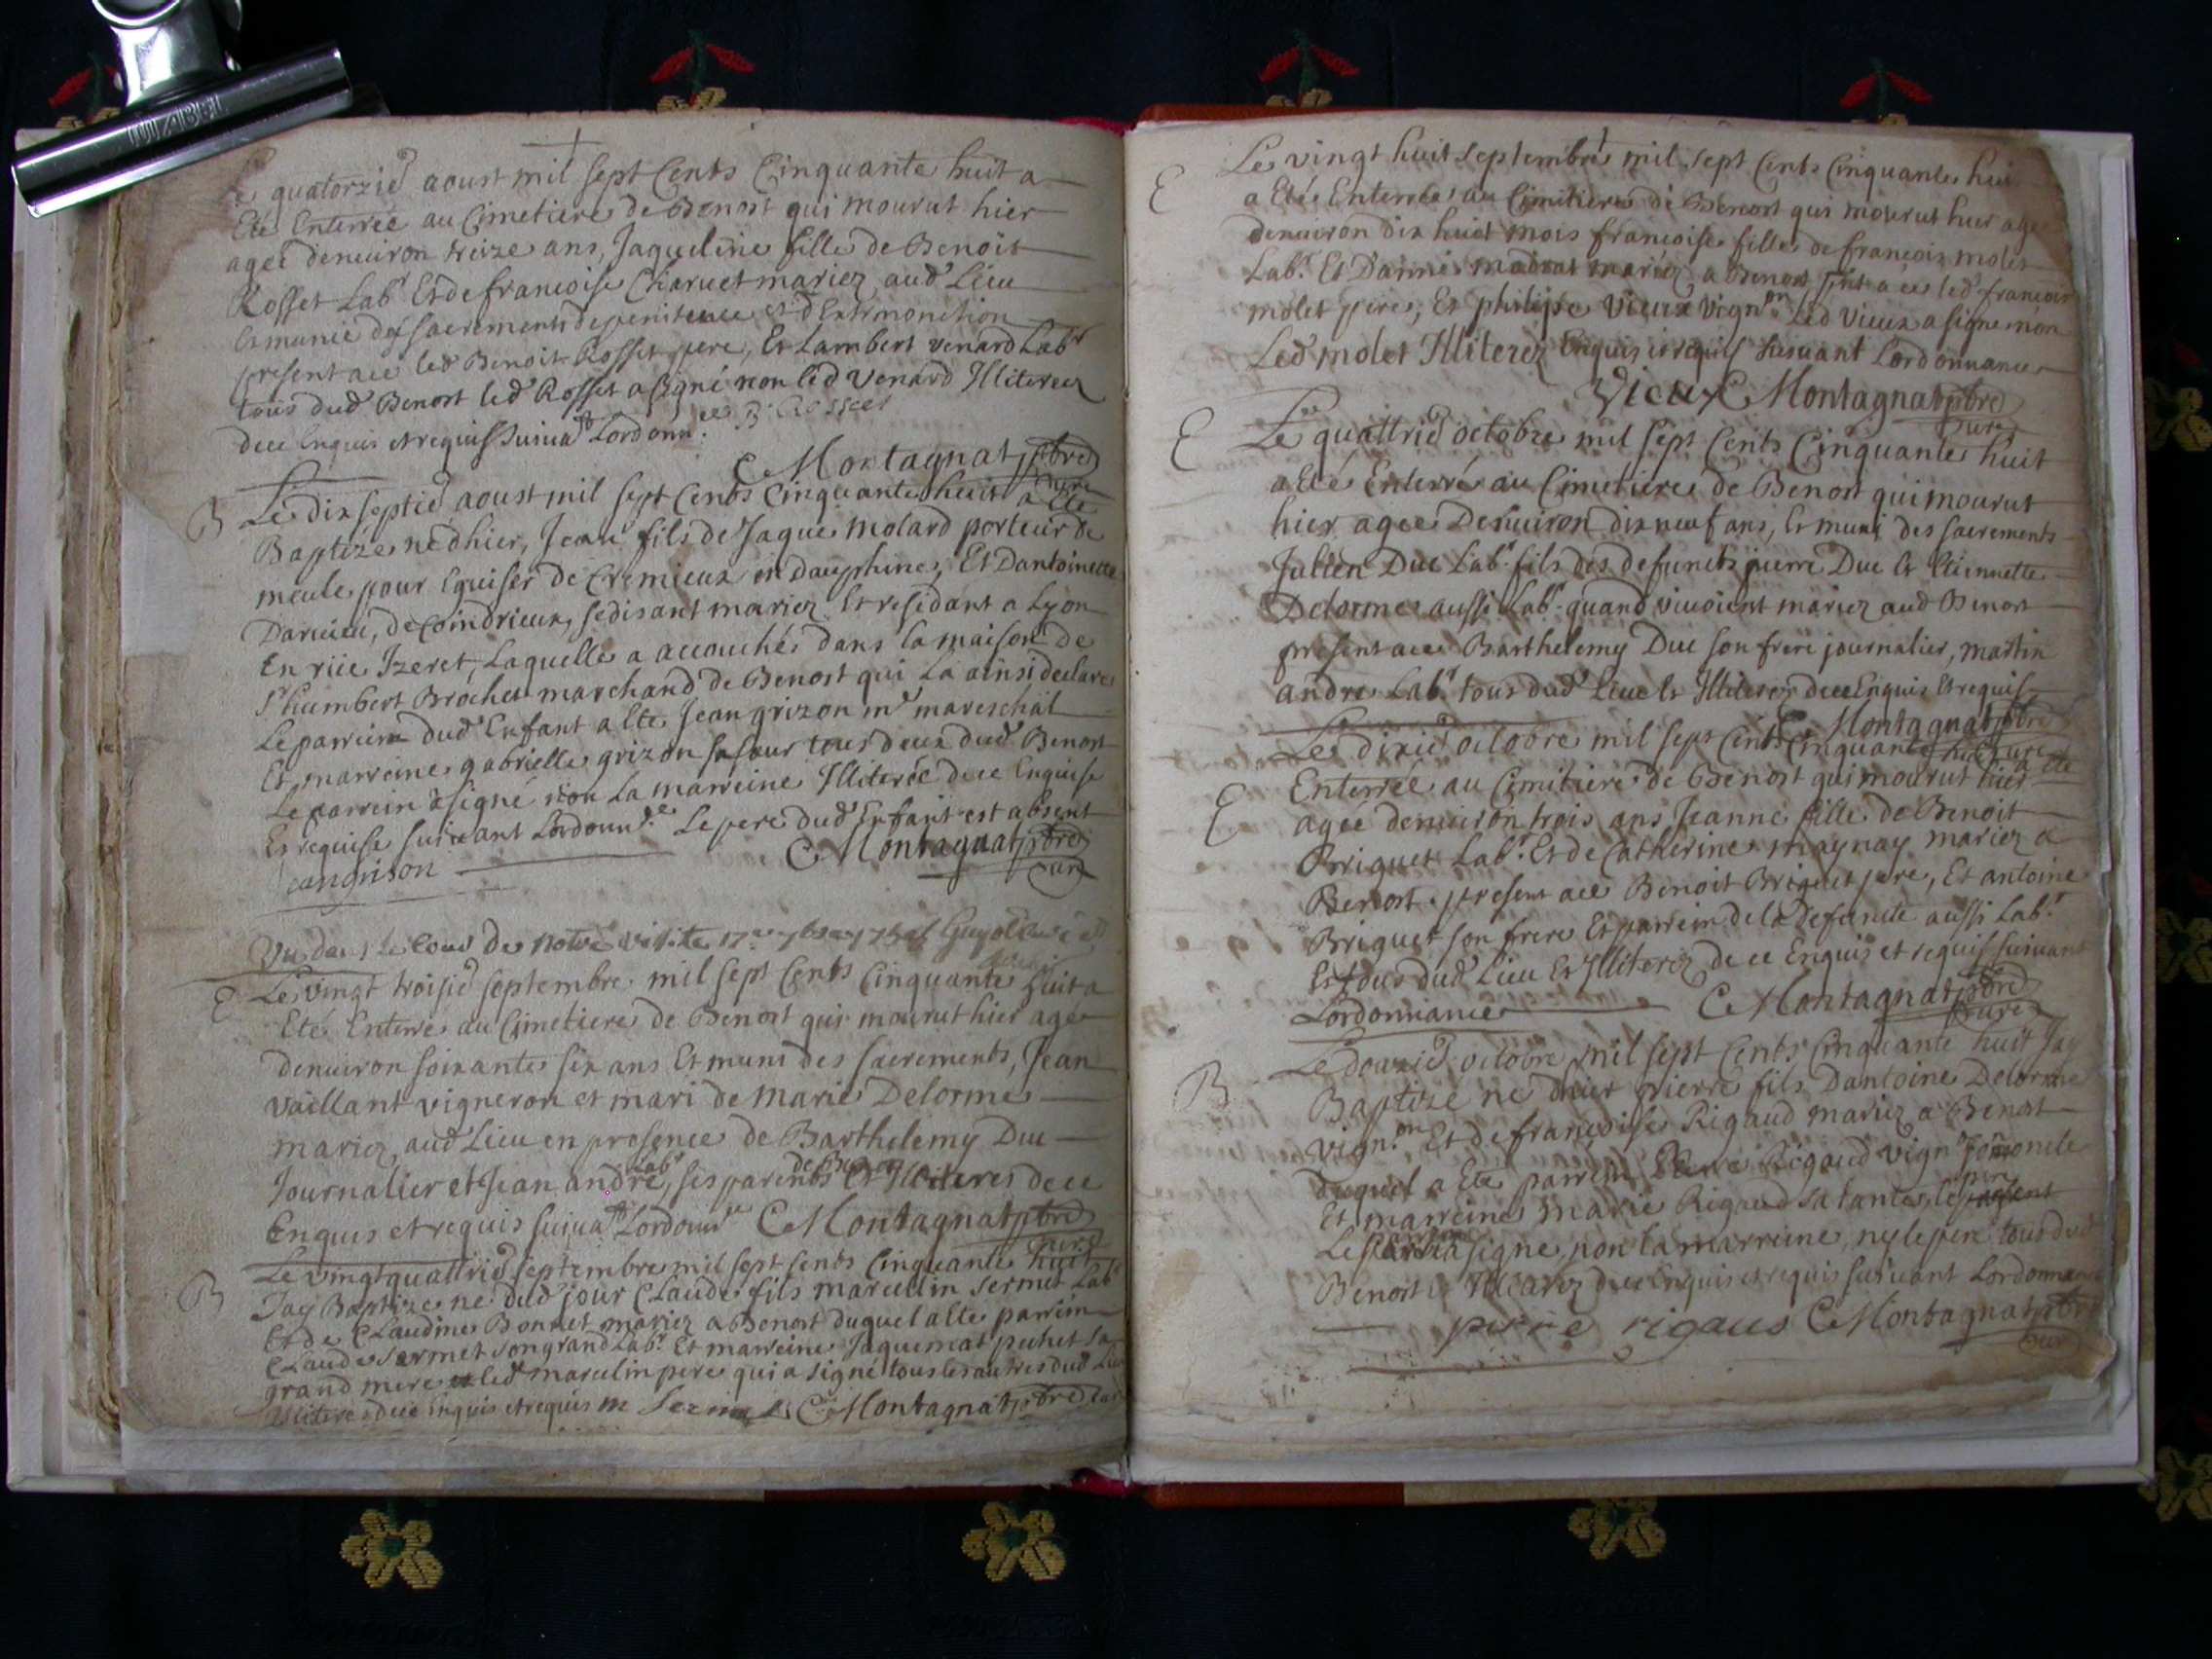 JUIZABEL
Le quatorzie aoust mil sept Cents Cinquante huit a
Eté Enterrée au Cimetiere de Benost qui mourut hier
ageé denuiron treize ans, Jaqueline fille de Benoit
Rosset Labr Et de francoise Charuet mariez aud Lieu
Et munie des sacrements de penitence et d'Extremonction
present ace led Benoit Rosset pere, Et Lambert venard Labr
tous dud Benost led Rosset a signé non led Venard Illiterez
dece Enquis et requis suiuat Lordonnce B Rosset
C Montagnat pbre
Curé
B
Le dix septie aoust mil sept Cents Cinquante huit a Eté
Baptize né dhier, Jean fils de Jaque molard porteur de
meule pour Eguiser de Cremieux en dauphine, Et Dantoinette
Daruieu, de Coindrieux, se disant mariez Et residant a Lyon
En rüe Izeret, Laquelle a accouché dans la maison de
Sr humbert Brochet marchand de Benost qui La ainsi declaré
Le parrein dud Enfant a Ete Jean grizon me mareschal
Et marreine gabrielle grizon sa sœur tous deux dud Benost
Le parrein a signé non La marreine Illiterée dece Enquise
Et requise suiuant Lordonnce Le pere dud Enfant est absent
jean grison C Montagnat pbre
Curé
Vu dans le Cours de notre visite 17e 7bre 1758
E
Le vingt troisie septembre mil sept Cents Cinquante huit a
Eté Enterré au Cimetiere de Benost qui mourut hier agé
denuiron soixante six ans Et muni des sacrements, Jean
vaillant vigneron et mari de marie Delorme
mariez aud Lieu en presence de Barthelemy Duc
Journalier et Jean andré Labr, ses parents de Benost Et Illiteres dece
Enquis et requis suiuat Lordonnce C Montagnat pbre
Curé
B
Le vingt quattrie septembre mil sept sents Cinquante huit
Jay Baptize né dud jour Claude fils marcellin sermet Labr
Et de Claudine Bonnet mariez a Benost duquel a Ete parrein
Claude sermet son grand Labr Et marreine Jaquemat puthet sa
grand mere et led marcelin pere qui a signé tous les autres dud Lieu
Illiteres dece inquis et requis m Sermet C Montagnat pbre Curé
E
Le vingt huit septembre mil sept Cents Cinquante huit
a Eté Enterrée au Cimitiere de Benost qui mourut hier agée
denuiron dix huit mois francoise fille de francois molet
Labr Et Danne mariez a Benost present a ce led francois
molet pere, Et philipe Vieux Vignon Led Vieux a signé non
Led molet Illiterez Enquis et requis suiuant Lordonnance
Vieux C Montagnat pbre
Curé
E
Le quattrie octobre mil sept Cents Cinquante huit
a Eté Enterré au Cimitiere de Benost qui mourut
hier agee Denuiron dix neuf ans, Et muni des sacrements
Julien Duc Labr fils des defuncts pierre Duc Et Etiennette
Delorme aussi Labr quand viuoient mariez aud Benost
present ace Barthelemy Duc son frere journalier, martin
andre Labr tous dud Lieu Et Illiterez dece Enquis Et requis
C Montagnat pbre
Curé
E
Le dixie octobre mil sept Cents Cinquante huit a Eté
Enterrée au Cimitiere de Benost qui mourut hier
ageé denuiron trois ans Jeanne fille de Benoit
Briguet Labr Et de Catherine maynay mariez a
Benost present ace Benoit Briguet pere, Et antoine
Briguet son frere Et parrein de la defuncte aussi Labr
Et tous dud Lieu Et Illiterez de ce Enquis et requis suiuant
Lordonnance C Montagnat pbre
Curé
B
Le douzie octobre mil sept Cents Cinquante huit Jay
Baptizé né dhier pierre fils Dantoine Delorme
vignon Et de francoise Rigaud mariez a Benost
duquel a Eté parrein Pierre Rigaud vignon son oncle
Et marreine marie Rigaud sa tante, le pere present
Le parrein a signe, non la marreine, ny le pere tous dud
Benost Et Illiterez dece Enquis et requis suiuant Lordonnance
pierre rigaus C Montagnat pbre
Curé